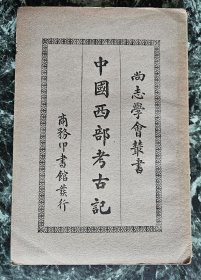 尚志學會叢書
中國西部考古記
商務印書館發行